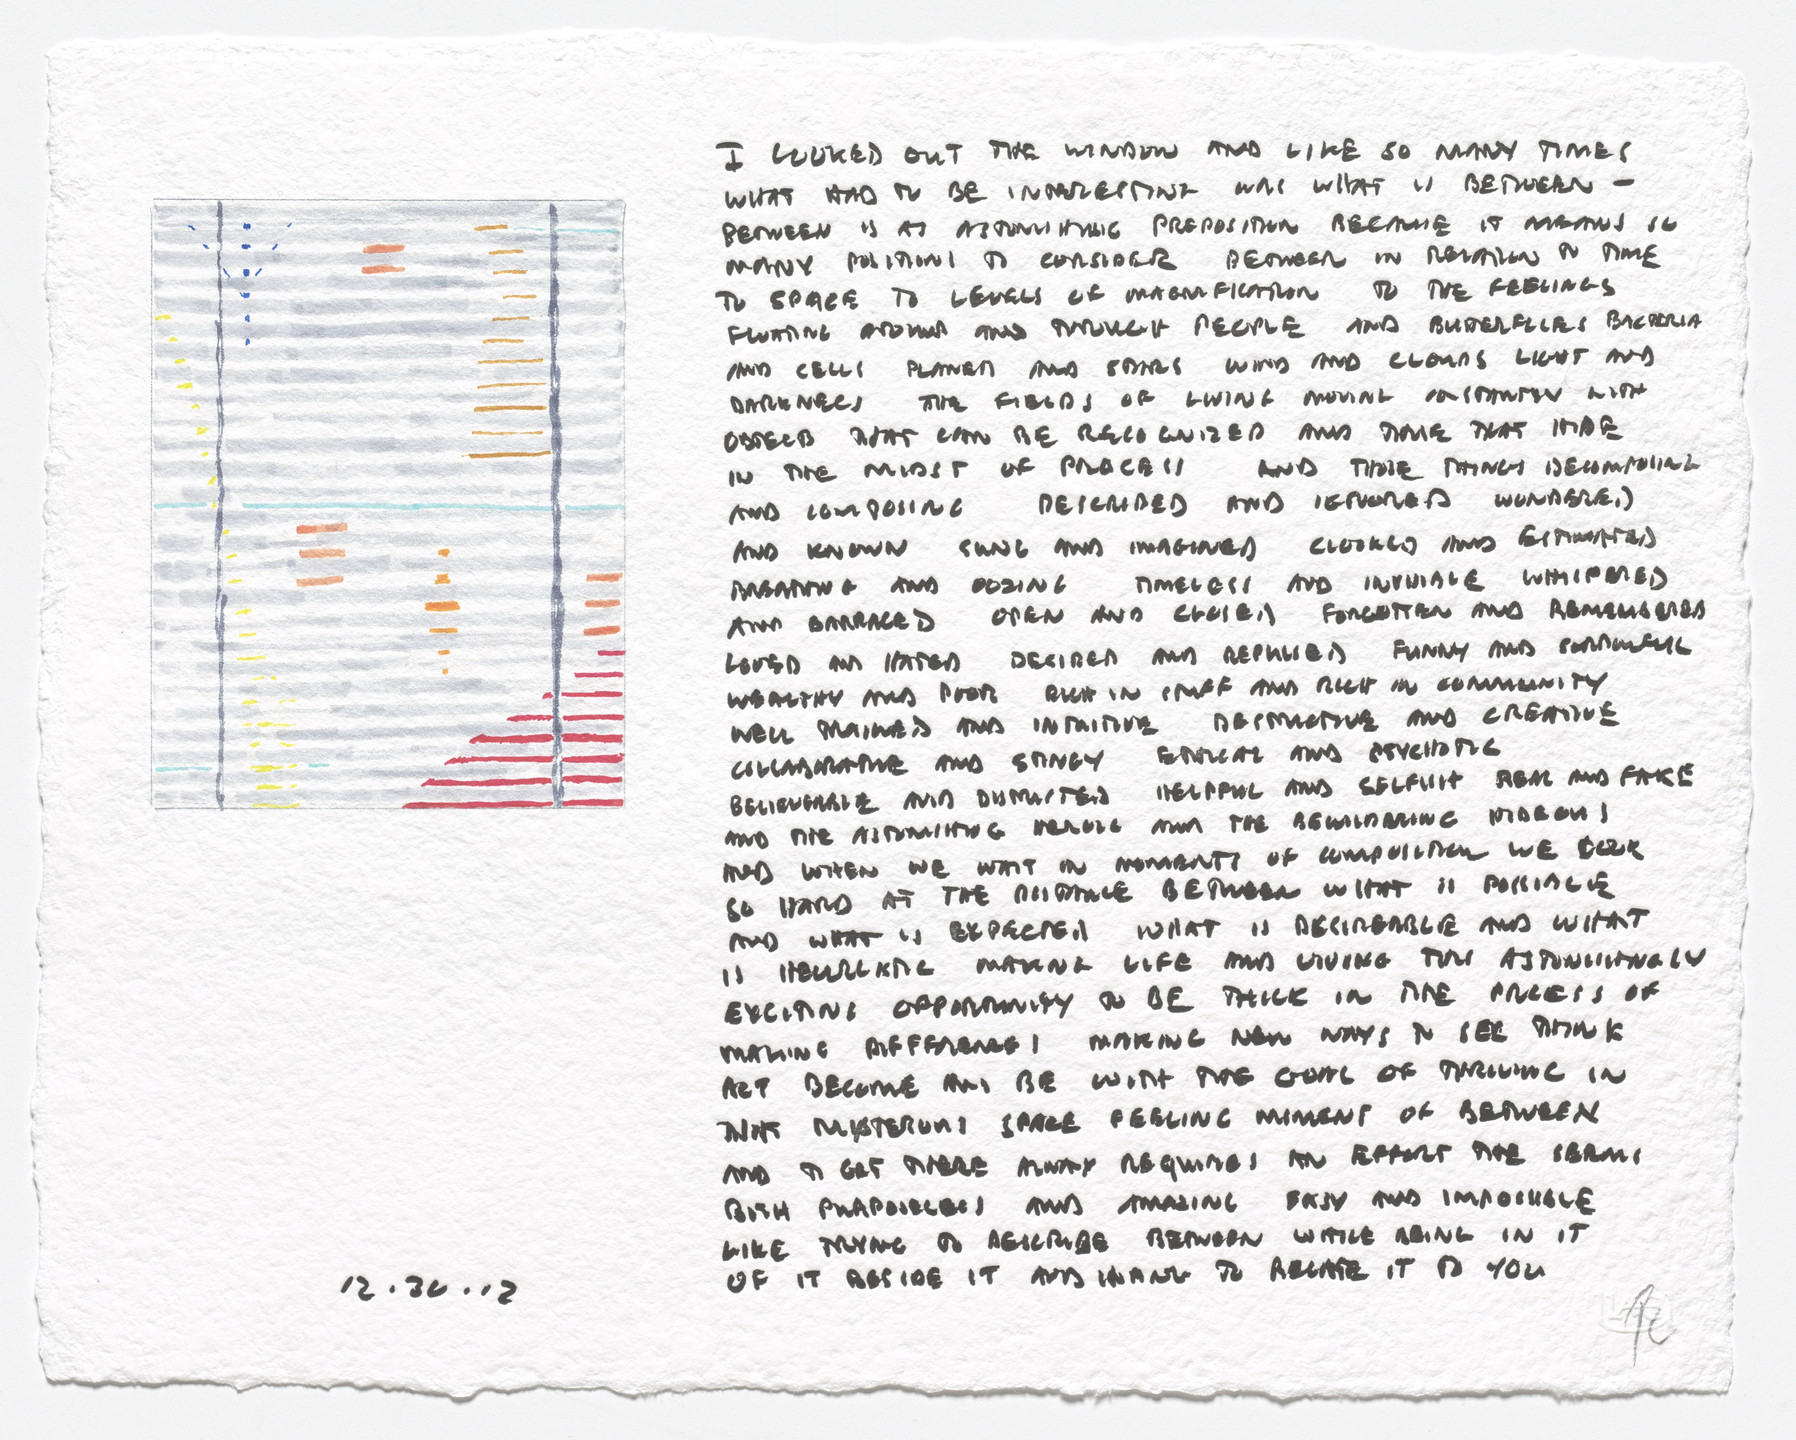 I LOOKED OUT THE WINDOW AND LIKE SO MANY TIMES
WHAT HAD TO BE INTERESTING WAS WHAT IS BETWEEN –
BETWEEN IS AS ASTONISHING PREPOSITION BECAUSE IT MEANS SO
MANY POSITIONS TO CONSIDER BETWEEN IN RELATION TO TIME
TO SPACE TO LEVELS OF MAGNIFICATION TO THE FEELINGS
FLOATING AROUND AND THROUGH PEOPLE AND BUTTERFLIES BACTERIA
AND CELLS PLANETS AND STARS WIND AND CLOUDS LIGHT AND
DARKNESS THE FIELDS OF LIVING MOVING CONSTANTLY WITH
OBJECTS THAT CAN BE RECOGNIZED AND THOSE THAT HIDE
IN THE MIDST OF PROCESS AND THOSE THINGS DECOMPOSING
AND COMPOSING DESCRIBED AND IGNORED WONDERED
AND KNOWN SUNG AND IMAGINED CLOCKED AND ESTIMATED
BREATHING AND OOZING TIMELESS AND INVISIBLE WHISPERED
AND BARRAGED OPEN AND CLOSED FORGOTTEN AND REMEMBERED
LOVED AND HATED DESIRED AND REPULSED FUNNY AND SORROWFUL
WEALTHY AND POOR RICH IN STUFF AND RICH IN COMMUNITY
WELL TRAINED AND INTUITIVE DESTRUCTIVE AND CREATIVE
COLLABORATIVE AND STINGY ETHICAL AND PSYCHOTIC
BELIEVABLE AND DISTRUSTED HELPFUL AND SELFISH REAL AND FAKE
AND THE ASTONISHING HEROIC AND THE BEWILDERING HIDEOUS
AND WHEN WE WAIT IN MOMENTS OF COMPOSITION WE LOOK
SO HARD AT THE DISTANCE BETWEEN WHAT IS POSSIBLE
AND WHAT IS EXPECTED WHAT IS DESIREABLE AND WHAT
IS HEURISTIC MAKING LIFE AND LIVING THIS ASTONISHINGLY
EXCITING OPPORTUNITY TO BE THICK IN THE PROCESS OF
MAKING DIFFERENCES MAKING NEW WAYS TO SEE THINK
ACT BECOME AND BE WITH THE GOAL OF THRIVING IN
THAT MYSTERIOUS SPACE FEELING MOMENT OF BETWEEN
AND TO GET THERE ALWAYS REQUIRES AN EFFORT THE SEEMS
BOTH PURPOSELESS AND AMAZING EASY AND IMPOSSIBLE
LIKE TRYING TO DESCRIBE BETWEEN WHILE BEING IN IT
OF IT BESIDE IT AND HAVING TO RELATE IT TO YOU
12.30.12